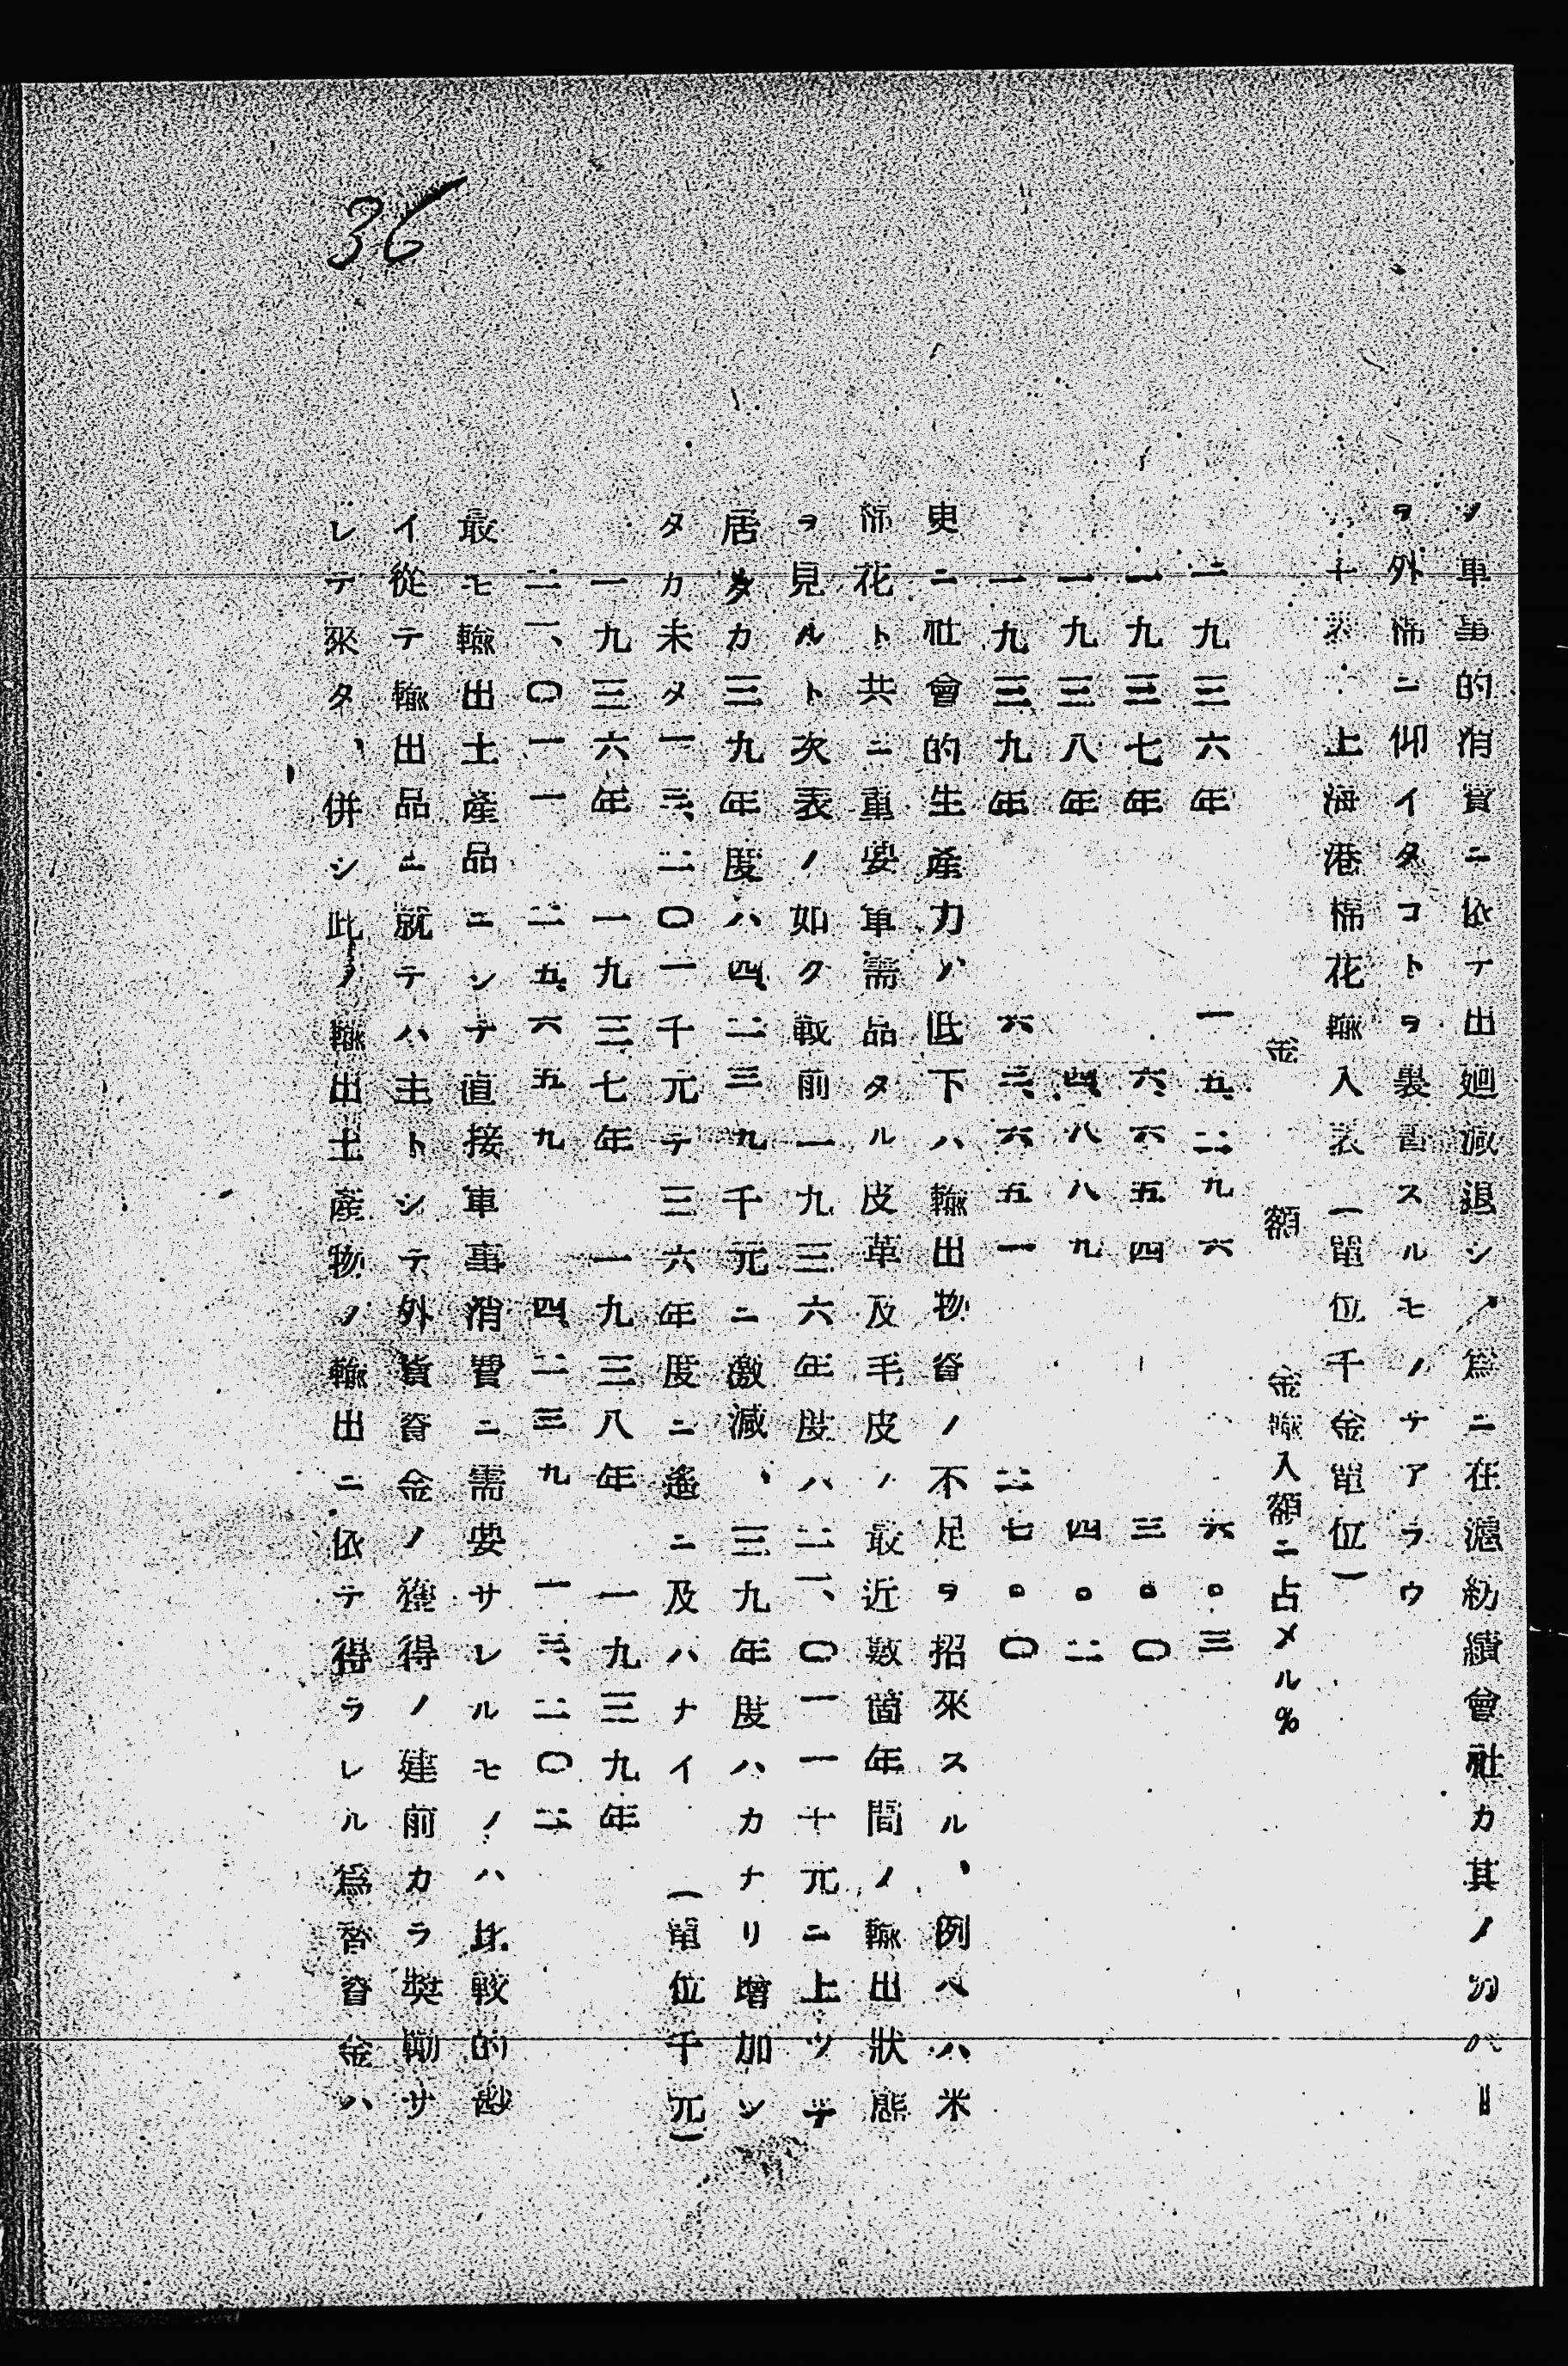 36
ノ軍事的消費ニ依テ出廻減退シノ爲ニ在滬紡績會社カ其ノ
ヲ外棉ニ仰イタコトヲ裏書スルモノテアラウ
十表 上海港棉花輸入表(單位千金單位)
金額 金輸入額ニ占メル%
一九三六年 一五、二九六 六・三
一九三七年 六、六五四 三・〇
一九三八年 四、八八九 四・二
一九三九年 六三、六五一 二七・〇
更ニ社會的生產力ノ低下ハ輸出物資ノ不足ヲ招來スル、例ヘハ米
棉花ト共ニ重要軍需品タル皮革及毛皮ノ最近數箇年間ノ輸出狀態
ヲ見ルト次表ノ如ク戰前一九三六年度ハ二一、〇一一十元ニ上ツテ
居タカ三九年度ハ四、二三九千元ニ激減、三九年度ハカナリ增加シ
タカ未タ一三、二〇一千元テ三六年度ニ遙ニ及ハナイ (單位千元)
一九三六年 一九三七年 一九三八年 一九三九年
二一、〇一一 二五、六五九 四、二三九 一三、二〇二
最モ輸出土產品ニシテ直接軍事消費ニ需要サレルモノハ比較的尠
イ從テ輸出品ニ就テハ主トシテ外貨資金ノ獲得ノ建前カラ奬勵サ
レテ來タ、併シ此ノ輸出土產物ノ輸出ニ依テ得ラレル爲替資金ハ